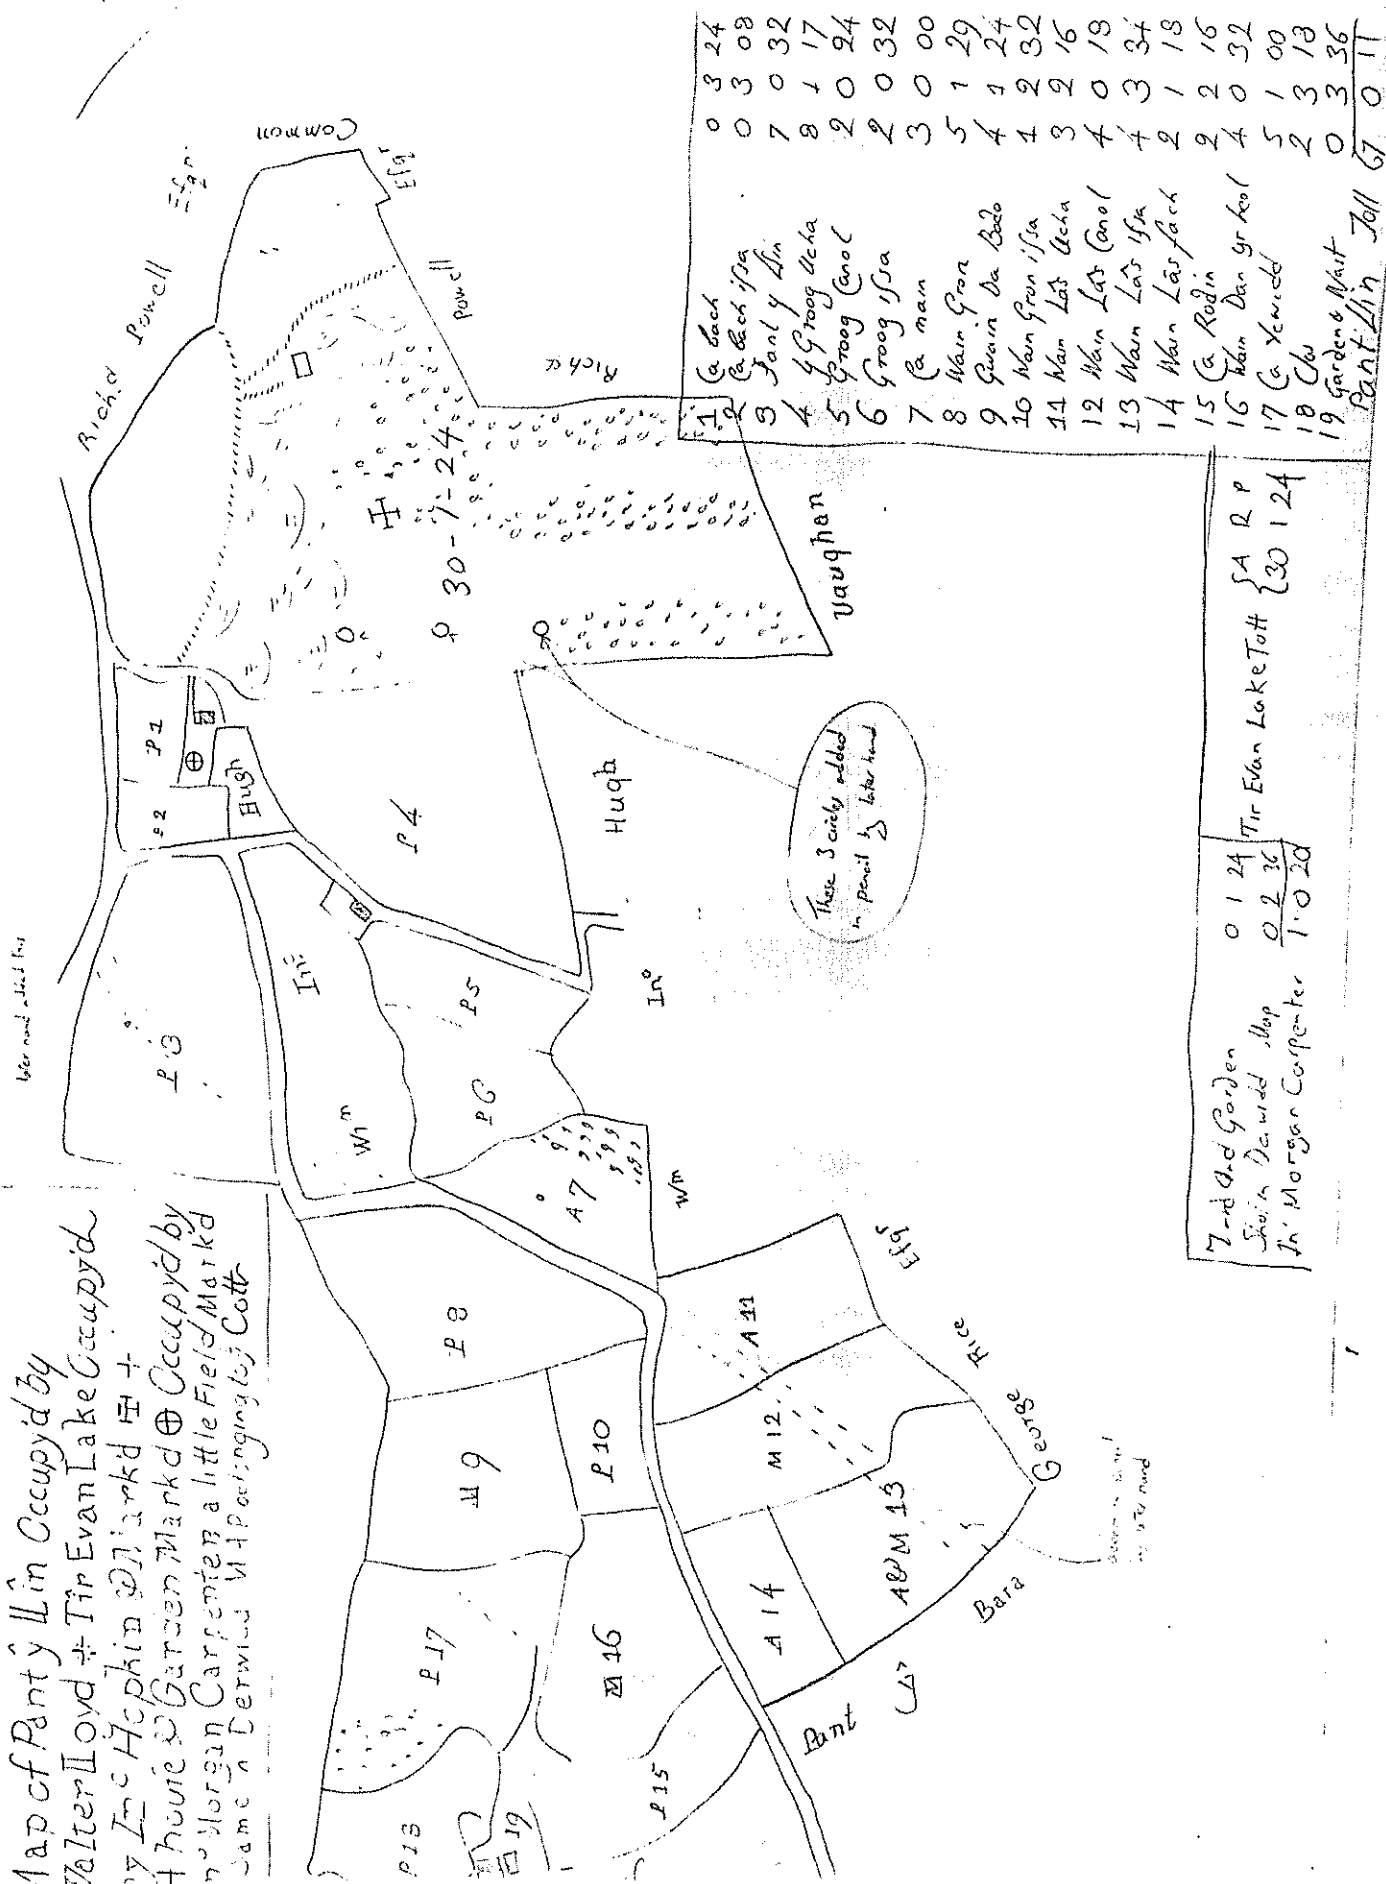 Map of Pant ŷ Llin Occupy'd by
Walter Lloyd + Tir Evan Lake Occupy'd
by Jno Hopkin @ Mark'd +
A house @ Garden Mark'd ⊕ Occupy'd by
Jno Morgan Carpenter a little Field Mark'd
Same in Derwidd
Cott
Later hand added this
Richd Powell Esqr
Common
Esqr
Powell
Richd
Vaughan
Hugh
Hugh
Jno
Wm
Jno
Wm
Esqr
Rice
George
Bara
Pant
P1
P2
P3
P4
P5
P6
A7
P8
M9
P10
A11
M12
A&M 13
A14
P15
M16
P17
P18
19
30-1-24
These 3 circles added
in pencil by later hand
1 Ca bach 0 3 24
2 Ca bach issa 0 3 08
3 Pant y Llin 7 0 32
4 Groog Ucha 8 1 17
5 Groog Canol 2 0 24
6 Groog issa 2 0 32
7 Ca main 3 0 00
8 Wain Gron 5 1 29
9 Gwain Da Bado 4 1 24
10 Wain Gron issa 1 2 32
11 Wain Lâs Ucha 3 2 16
12 Wain Lâs Canol 4 0 18
13 Wain Lâs issa 4 3 34
14 Wain Lâs fach 2 1 18
15 Ca Rodin 2 2 16
16 Wain Dan yr heol 4 0 32
17 Ca 5 1 00
18 2 3 18
19 Garden & Wast 0 3 36
Pant Llin Totl 67 0 11
Tir Evan Lake Tott { A R P
30 1 24
and Garden 0 1 24
in Derwidd Map 0 2 36
Jno Morgan Carpenter 1 0 20